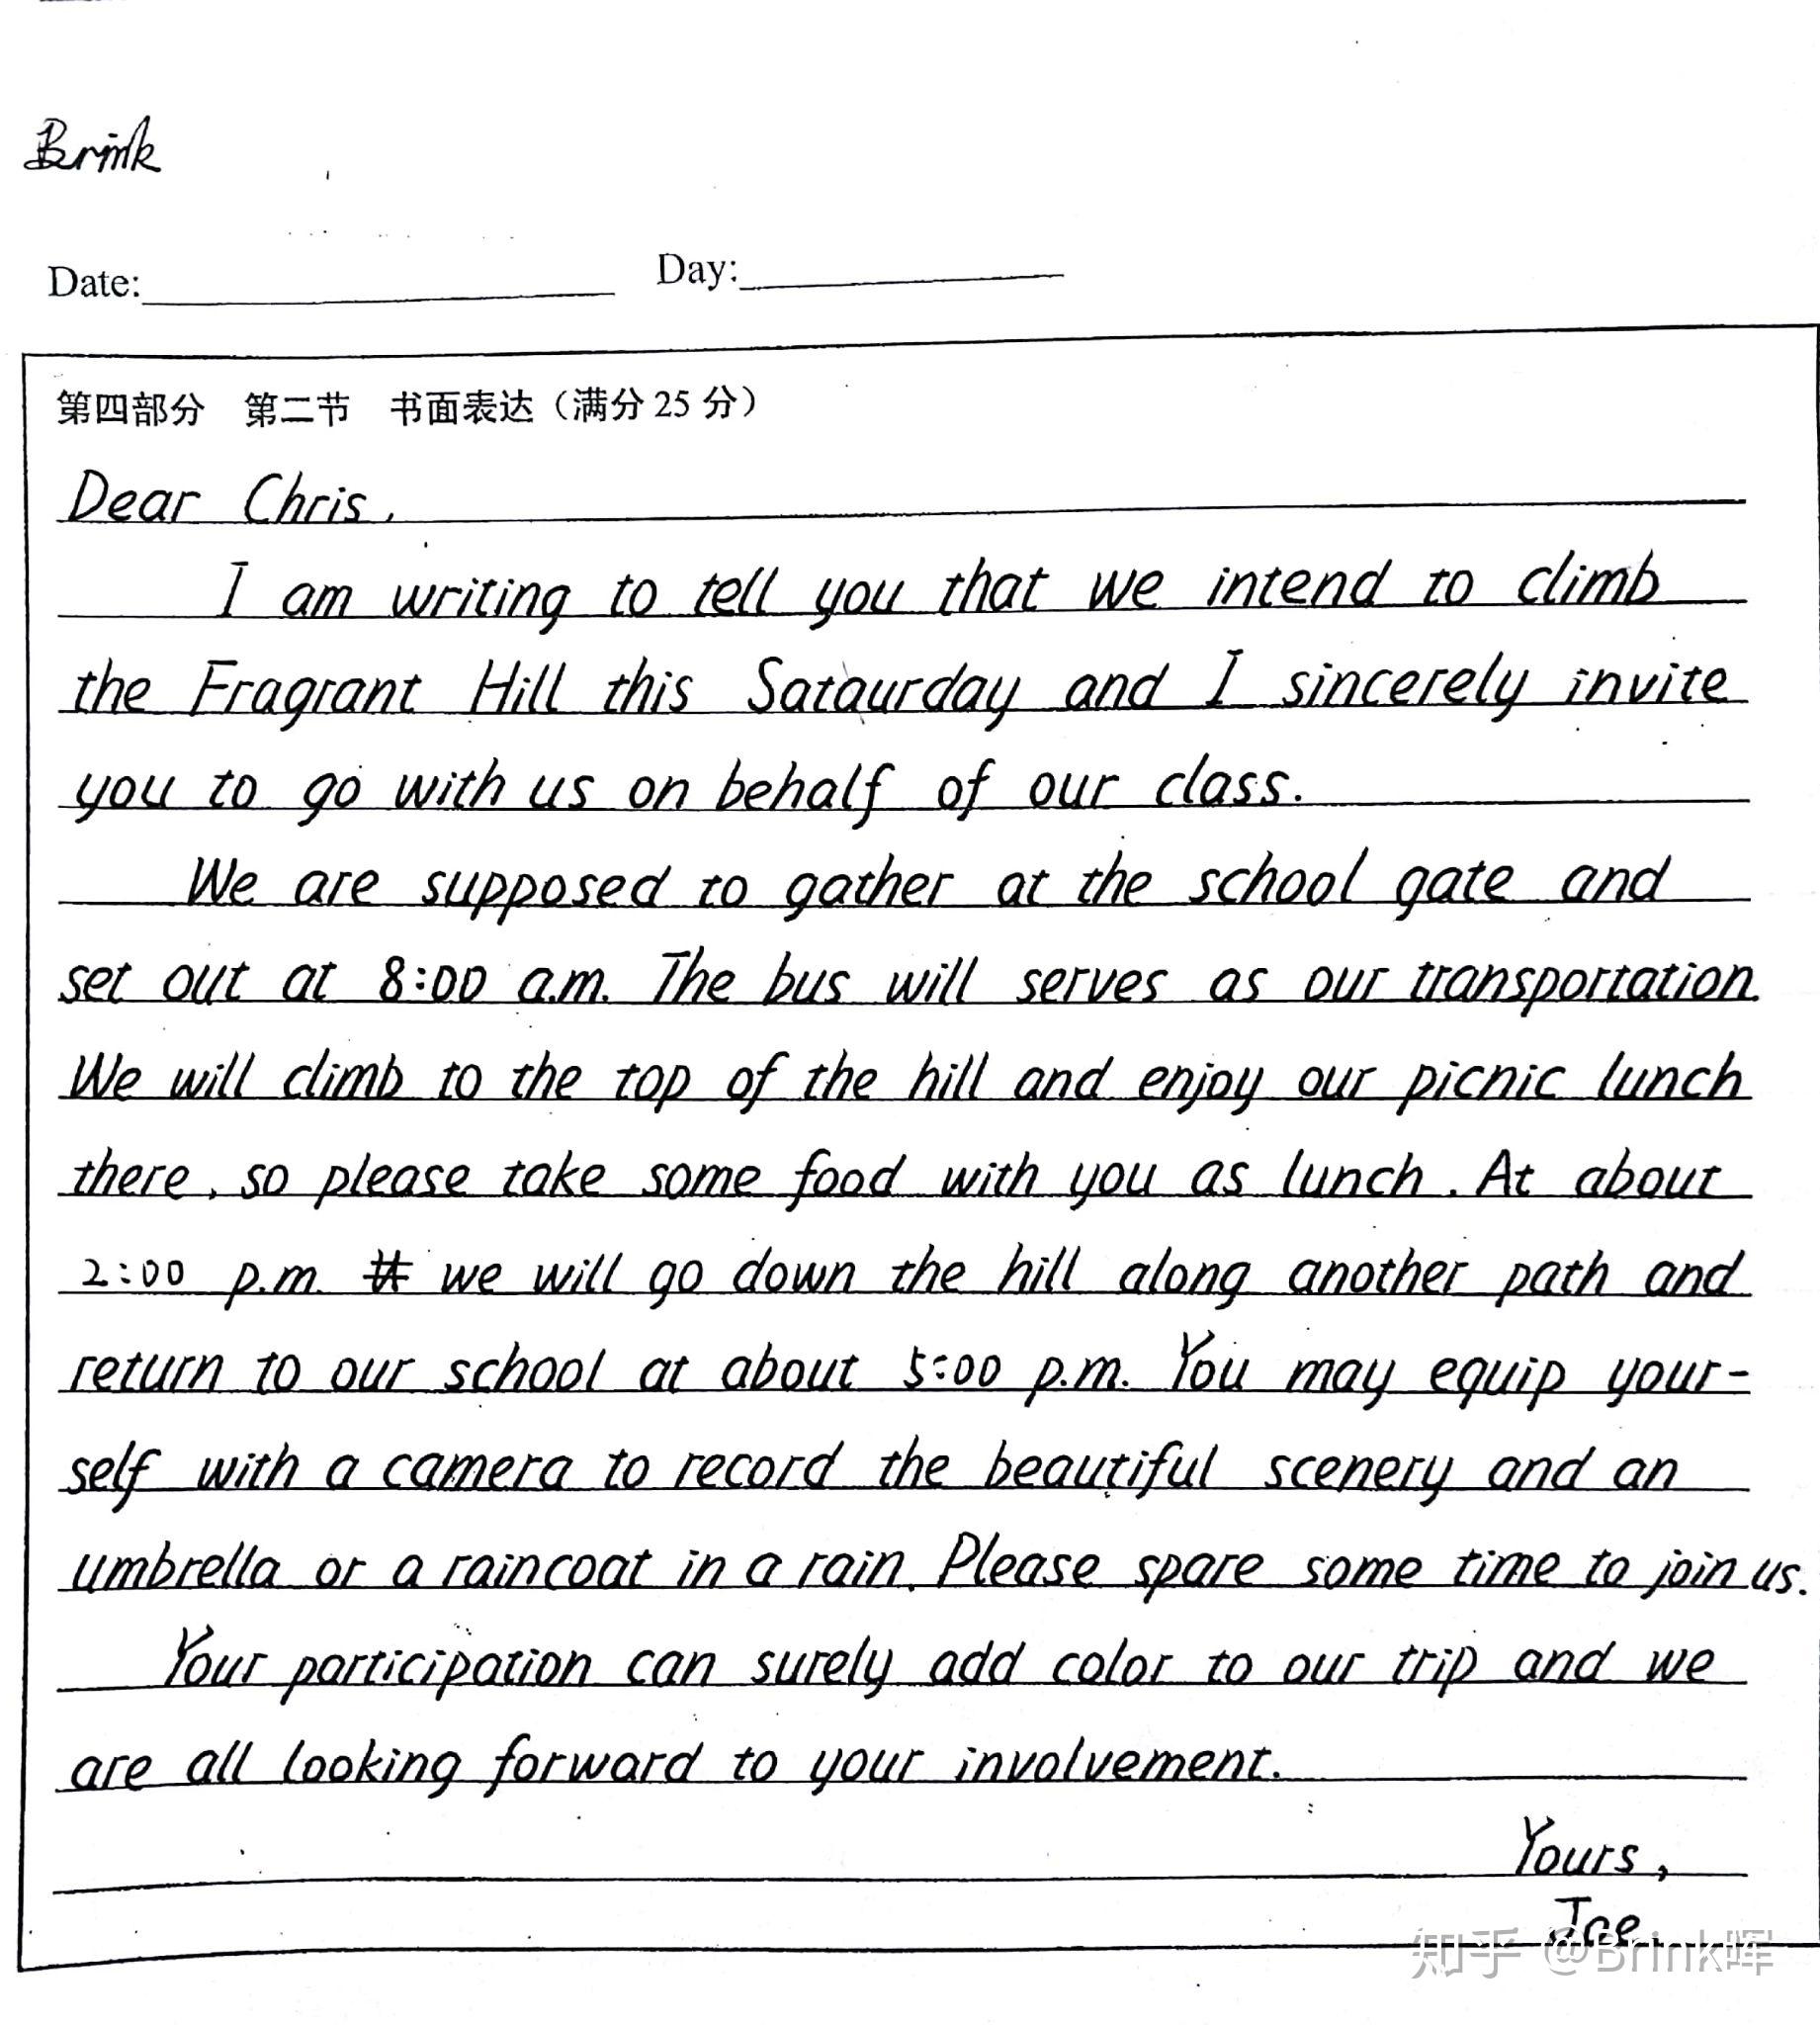 Brink
Date: Day:
第四部分 第二节 书面表达（满分 25 分）
Dear Chris,
I am writing to tell you that we intend to climb
the Fragrant Hill this Sataurday and I sincerely invite
you to go with us on behalf of our class.
We are supposed to gather at the school gate and
set out at 8:00 a.m. The bus will serves as our transportation.
We will climb to the top of the hill and enjoy our picnic lunch
there, so please take some food with you as lunch. At about
2:00 p.m. we will go down the hill along another path and
return to our school at about 5:00 p.m. You may equip your-
self with a camera to record the beautiful scenery and an
umbrella or a raincoat in a rain. Please spare some time to join us.
Your participation can surely add color to our trip and we
are all looking forward to your involvement.
Yours,
Joe
知乎 @Brink晖